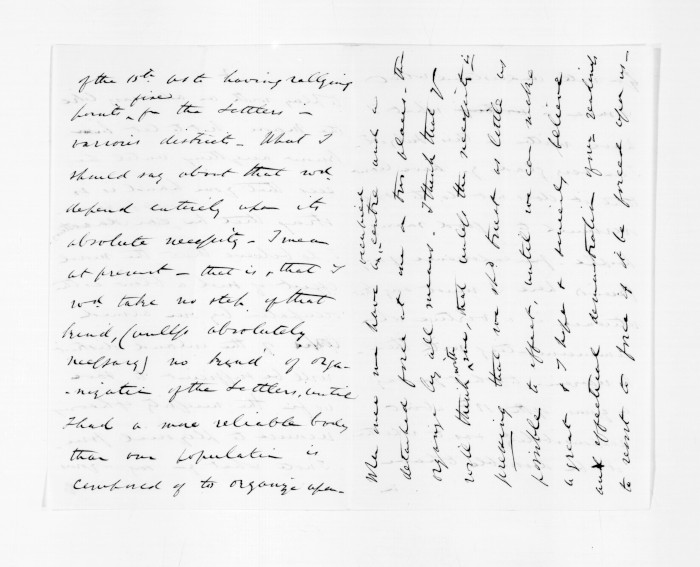 of the 15th as to having rallying
points fixed for the Settlers in
various district - What I
should say about that wd.
depend entirely upon its
absolute necessity - I mean
at present - that is, that I
wd. take no step of that
kind, (unless absolutely
necessary) no kind of orga-
-nization of the Settlers, until
I had a more reliable body
than our population is
composed of to organize upon -
When once we have occupied a centre and a
detached force at one or two places - then
organize by all means. I think that you
will think with me, that unless the necessity is
pressing that we shd. trust as little as
possible to effect, until we can make
a great & I hope & sincerely believe
an effectual demonstration of our resources
to resort to force if it be forced upon us -